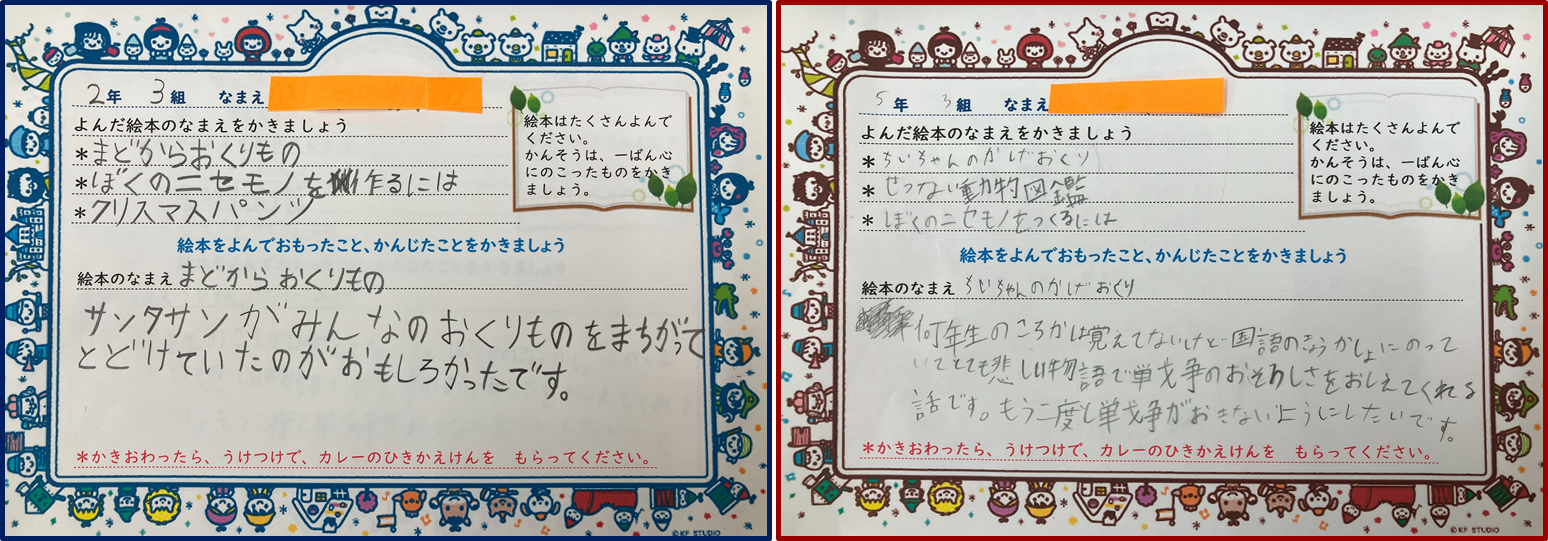 2年 3組 なまえ
よんだ絵本のなまえをかきましょう
*まどからおくりもの
*ぼくのニセモノを作るには
*クリスマスパンツ
絵本はたくさんよんで
ください。
かんそうは、一ばん心
にのこったものをかき
ましょう。
絵本をよんでおもったこと、かんじたことをかきましょう
絵本のなまえ まどからおくりもの
サンタサンがみんなのおくりものをまちがって
とどけていたのがおもしろかったです。
*かきおわったら、うけつけで、カレーのひきかえけんを もらってください。
5年 3組 なまえ
よんだ絵本のなまえをかきましょう
*ちいちゃんのかげおくり
*せつない動物図鑑
*ぼくのニセモノをつくるには
絵本はたくさんよんで
ください。
かんそうは、一ばん心
にのこったものをかき
ましょう。
絵本をよんでおもったこと、かんじたことをかきましょう
絵本のなまえ ちいちゃんのかげおくり
何年生のころかは覚えてないけど国語のきょうかしょにのって
いてとても悲しい物語で戦争のおそろしさをおしえてくれる
話です。もう二度と戦争がおきないようにしたいです。
*かきおわったら、うけつけで、カレーのひきかえけんを もらってください。
©KF STUDIO
©KF STUDIO